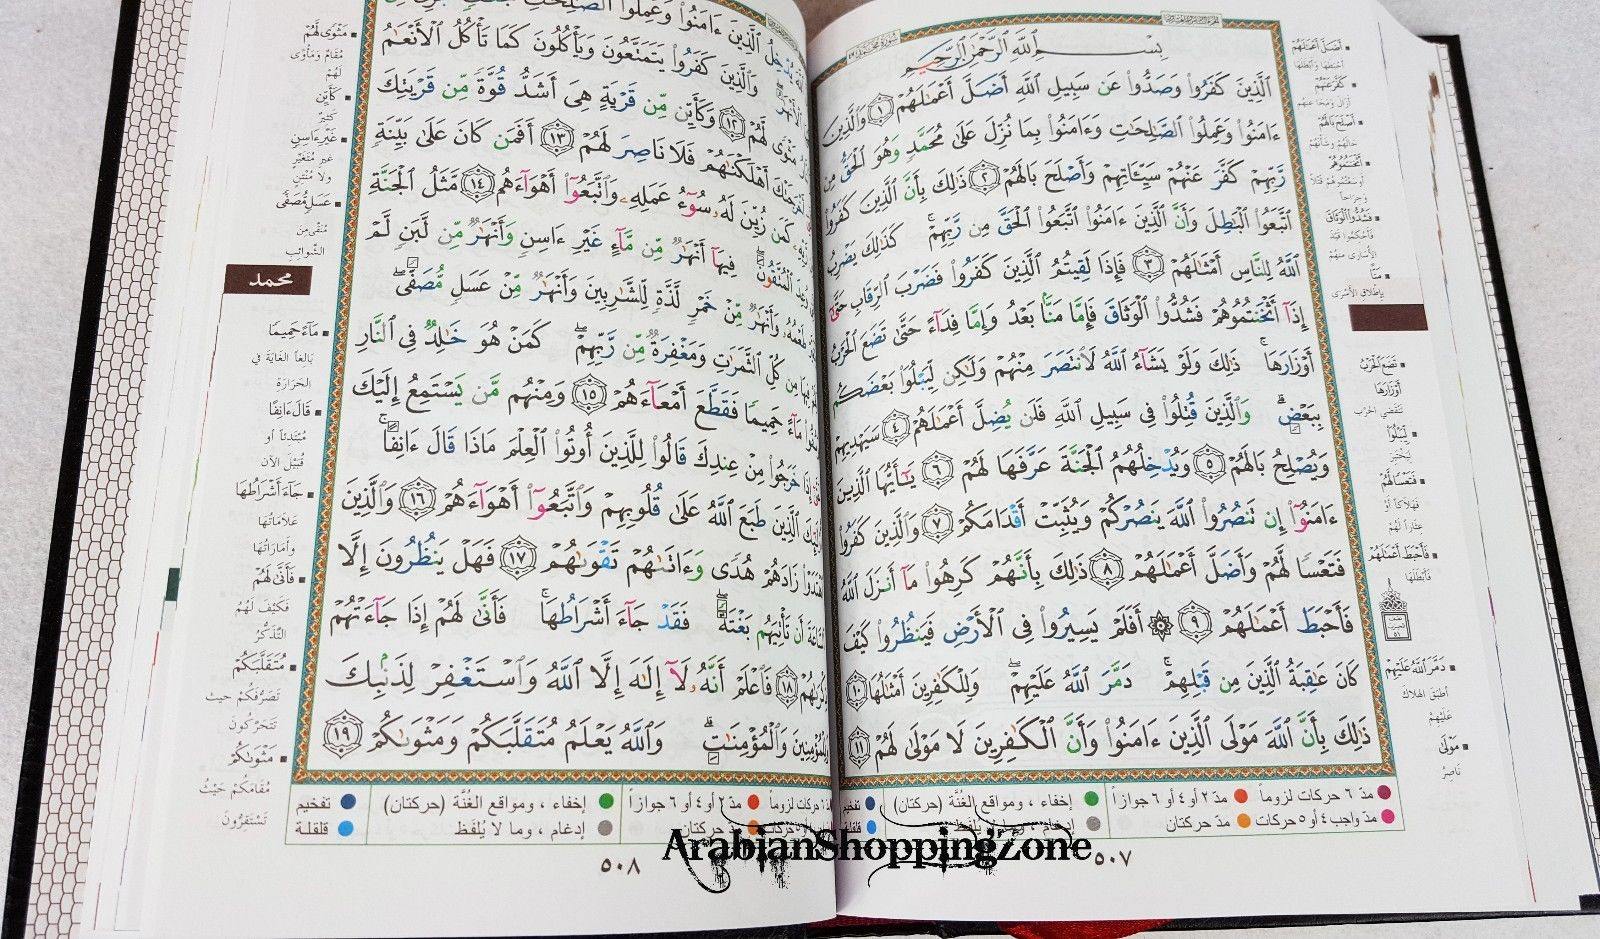 بِسْمِ ٱللَّهِ ٱلرَّحْمَٰنِ ٱلرَّحِيمِ
ٱلَّذِينَ كَفَرُوا۟ وَصَدُّوا۟ عَن سَبِيلِ ٱللَّهِ أَضَلَّ أَعْمَٰلَهُمْ ١ وَٱلَّذِينَ
ءَامَنُوا۟ وَعَمِلُوا۟ ٱلصَّٰلِحَٰتِ وَءَامَنُوا۟ بِمَا نُزِّلَ عَلَىٰ مُحَمَّدٍ وَهُوَ ٱلْحَقُّ مِن
رَّبِّهِمْ كَفَّرَ عَنْهُمْ سَيِّـَٔاتِهِمْ وَأَصْلَحَ بَالَهُمْ ٢ ذَٰلِكَ بِأَنَّ ٱلَّذِينَ كَفَرُوا۟
ٱتَّبَعُوا۟ ٱلْبَٰطِلَ وَأَنَّ ٱلَّذِينَ ءَامَنُوا۟ ٱتَّبَعُوا۟ ٱلْحَقَّ مِن رَّبِّهِمْ ۚ كَذَٰلِكَ يَضْرِبُ
ٱللَّهُ لِلنَّاسِ أَمْثَٰلَهُمْ ٣ فَإِذَا لَقِيتُمُ ٱلَّذِينَ كَفَرُوا۟ فَضَرْبَ ٱلرِّقَابِ حَتَّىٰٓ
إِذَآ أَثْخَنتُمُوهُمْ فَشُدُّوا۟ ٱلْوَثَاقَ فَإِمَّا مَنًّۢا بَعْدُ وَإِمَّا فِدَآءً حَتَّىٰ تَضَعَ ٱلْحَرْبُ
أَوْزَارَهَا ۚ ذَٰلِكَ وَلَوْ يَشَآءُ ٱللَّهُ لَٱنتَصَرَ مِنْهُمْ وَلَٰكِن لِّيَبْلُوَا۟ بَعْضَكُم
بِبَعْضٍ ۗ وَٱلَّذِينَ قُتِلُوا۟ فِى سَبِيلِ ٱللَّهِ فَلَن يُضِلَّ أَعْمَٰلَهُمْ ٤ سَيَهْدِيهِمْ
وَيُصْلِحُ بَالَهُمْ ٥ وَيُدْخِلُهُمُ ٱلْجَنَّةَ عَرَّفَهَا لَهُمْ ٦ يَٰٓأَيُّهَا ٱلَّذِينَ
ءَامَنُوٓا۟ إِن تَنصُرُوا۟ ٱللَّهَ يَنصُرْكُمْ وَيُثَبِّتْ أَقْدَامَكُمْ ٧ وَٱلَّذِينَ كَفَرُوا۟
فَتَعْسًا لَّهُمْ وَأَضَلَّ أَعْمَٰلَهُمْ ٨ ذَٰلِكَ بِأَنَّهُمْ كَرِهُوا۟ مَآ أَنزَلَ ٱللَّهُ
فَأَحْبَطَ أَعْمَٰلَهُمْ ٩ ۞ أَفَلَمْ يَسِيرُوا۟ فِى ٱلْأَرْضِ فَيَنظُرُوا۟ كَيْفَ
كَانَ عَٰقِبَةُ ٱلَّذِينَ مِن قَبْلِهِمْ ۚ دَمَّرَ ٱللَّهُ عَلَيْهِمْ ۖ وَلِلْكَٰفِرِينَ أَمْثَٰلُهَا ١٠
ذَٰلِكَ بِأَنَّ ٱللَّهَ مَوْلَى ٱلَّذِينَ ءَامَنُوا۟ وَأَنَّ ٱلْكَٰفِرِينَ لَا مَوْلَىٰ لَهُمْ ١١
أَضَلَّ أَعْمَالَهُمْ
كَفَّرَ عَنْهُمْ
أَصْلَحَ بَالَهُمْ
أَثْخَنتُمُوهُمْ
فَشُدُّوا الْوَثَاقَ
مَنًّا
بإطلاق الأسرى
تَضَعَ الْحَرْبُ
أَوْزَارَهَا
تنقضي الحرب
لِيَبْلُوَا
ليختبر
فَتَعْسًا لَّهُمْ
فَأَحْبَطَ أَعْمَالَهُمْ
فأبطلها
دَمَّرَ اللَّهُ عَلَيْهِمْ
أطبق الهلاك
عليهم
مَوْلَى
ناصر
مدّ ٦ حركات لزوماً مدّ ٢ أو ٤ أو ٦ جوازاً إخفاء ، ومواقع الغُنَّة (حركتان) تفخيم
مدّ واجب ٤ أو ٥ حركات مدّ حركتان
٥٠٧
ٱلَّذِينَ ءَامَنُوا۟ وَعَمِلُوا۟ ٱلصَّٰلِحَٰتِ
وَٱلَّذِينَ كَفَرُوا۟ يَتَمَتَّعُونَ وَيَأْكُلُونَ كَمَا تَأْكُلُ ٱلْأَنْعَٰمُ
مَثْوًى لَّهُمْ ١٢ وَكَأَيِّن مِّن قَرْيَةٍ هِىَ أَشَدُّ قُوَّةً مِّن قَرْيَتِكَ
أَهْلَكْنَٰهُمْ فَلَا نَاصِرَ لَهُمْ ١٣ أَفَمَن كَانَ عَلَىٰ بَيِّنَةٍ
كَمَن زُيِّنَ لَهُۥ سُوٓءُ عَمَلِهِۦ وَٱتَّبَعُوٓا۟ أَهْوَآءَهُم ١٤ مَّثَلُ ٱلْجَنَّةِ
ٱلْمُتَّقُونَ ۖ فِيهَآ أَنْهَٰرٌ مِّن مَّآءٍ غَيْرِ ءَاسِنٍ وَأَنْهَٰرٌ مِّن لَّبَنٍ لَّمْ
وَأَنْهَٰرٌ مِّنْ خَمْرٍ لَّذَّةٍ لِّلشَّٰرِبِينَ وَأَنْهَٰرٌ مِّنْ عَسَلٍ مُّصَفًّى ۖ
مِن كُلِّ ٱلثَّمَرَٰتِ وَمَغْفِرَةٌ مِّن رَّبِّهِمْ ۖ كَمَنْ هُوَ خَٰلِدٌ فِى ٱلنَّارِ
مَآءً حَمِيمًا فَقَطَّعَ أَمْعَآءَهُمْ ١٥ وَمِنْهُم مَّن يَسْتَمِعُ إِلَيْكَ
إِذَا خَرَجُوا۟ مِنْ عِندِكَ قَالُوا۟ لِلَّذِينَ أُوتُوا۟ ٱلْعِلْمَ مَاذَا قَالَ ءَانِفًا ۚ
ٱلَّذِينَ طَبَعَ ٱللَّهُ عَلَىٰ قُلُوبِهِمْ وَٱتَّبَعُوٓا۟ أَهْوَآءَهُمْ ١٦ وَٱلَّذِينَ
ٱهْتَدَوْا۟ زَادَهُمْ هُدًى وَءَاتَىٰهُمْ تَقْوَىٰهُمْ ١٧ فَهَلْ يَنظُرُونَ إِلَّا
ٱلسَّاعَةَ أَن تَأْتِيَهُم بَغْتَةً ۖ فَقَدْ جَآءَ أَشْرَاطُهَا ۚ فَأَنَّىٰ لَهُمْ إِذَا جَآءَتْهُمْ
ذِكْرَىٰهُمْ ١٨ فَٱعْلَمْ أَنَّهُۥ لَآ إِلَٰهَ إِلَّا ٱللَّهُ وَٱسْتَغْفِرْ لِذَنۢبِكَ
وَلِلْمُؤْمِنِينَ وَٱلْمُؤْمِنَٰتِ ۗ وَٱللَّهُ يَعْلَمُ مُتَقَلَّبَكُمْ وَمَثْوَىٰكُمْ ١٩
مَثْوًى لَّهُمْ
مُقام ومأوى
لهم
كَأَيِّن
كثير
غَيْرِ ءَاسِنٍ
غير متغير
ولا منتن
عَسَلٍ مُّصَفًّى
منقى من
الشوائب
محمد
مَاءً حَمِيمًا
بالغاً الغاية في
الحرارة
قَالَ ءَانِفًا
مبتدئاً أو
قبيل الآن
جَاءَ أَشْرَاطُهَا
علاماتها
وأماراتها
فَأَنَّى لَهُمْ
فكيف لهم
التذكر
مُتَقَلَّبَكُمْ
تصرفكم حيث
تتحركون
مَثْوَاكُمْ
مقامكم حيث
تستقرون
مدّ ٢ أو ٤ أو ٦ جوازاً إخفاء ، ومواقع الغُنَّة (حركتان) تفخيم
مدّ حركتان إدغام ، وما لا يُلفَظ قلقلة
٥٠٨
ArabianShoppingZone